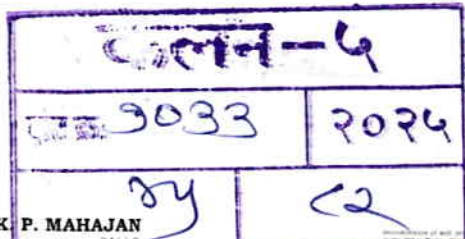 कलन-५
१०३३ २०२५
८२
K. P. MAHAJAN